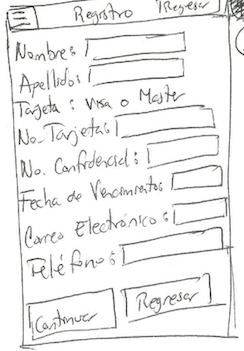 Registro Regresar
Nombre:
Apellido:
Tarjeta: Visa o Master
No. Tarjeta:
No. Confidencial:
Fecha de Vencimiento:
Correo Electrónico:
Teléfono:
Continuar Regresar